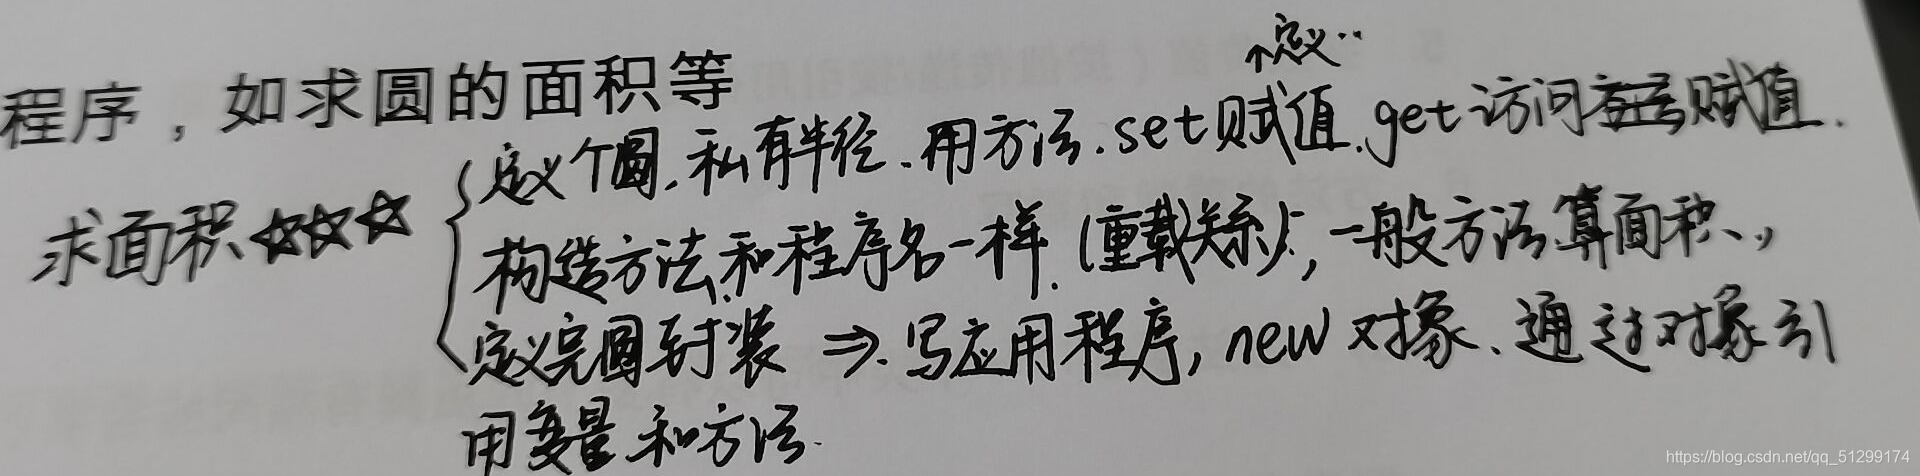 程序，如求圆的面积等
个定义..
求面积☆☆☆
定义个圆,私有半径.用方法.set赋值.get访问赋值.
构造方法和程序名一样.(重载关系),一般方法算面积、,
定义完圆封装⇒.写应用程序,new对象.通过对象引
用变量和方法.
https://blog.csdn.net/qq_51299174